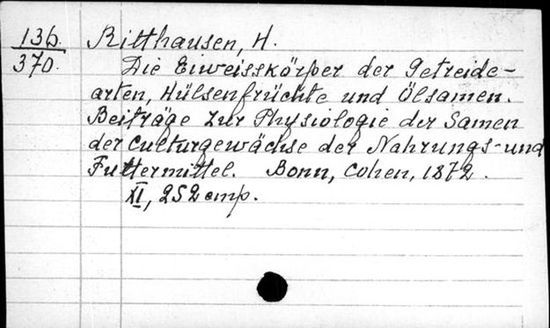 136. Ritthausen, H.
370. Die Eiweisskörper der Getreide-
arten, Hülsenfrüchte und Ölsamen.
Beiträge zur Physiologie der Samen
der Culturgewächse der Nahrungs- und
Futtermittel. Bonn, Cohen, 1872.
XI, 252 стр.